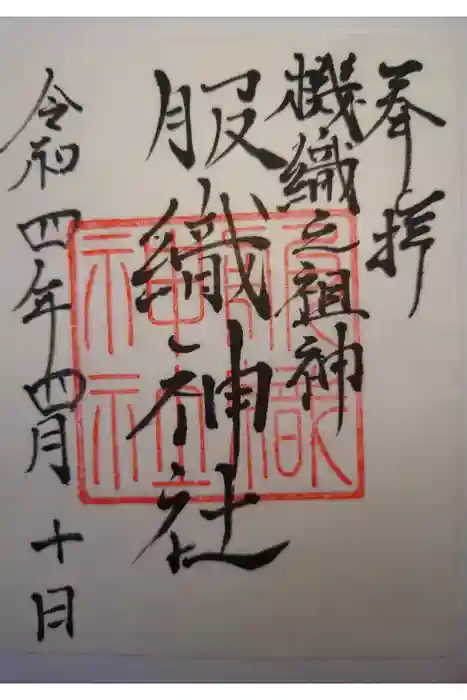 奉拝
機織之祖神
服織神社
令和四年四月十日
服織神社